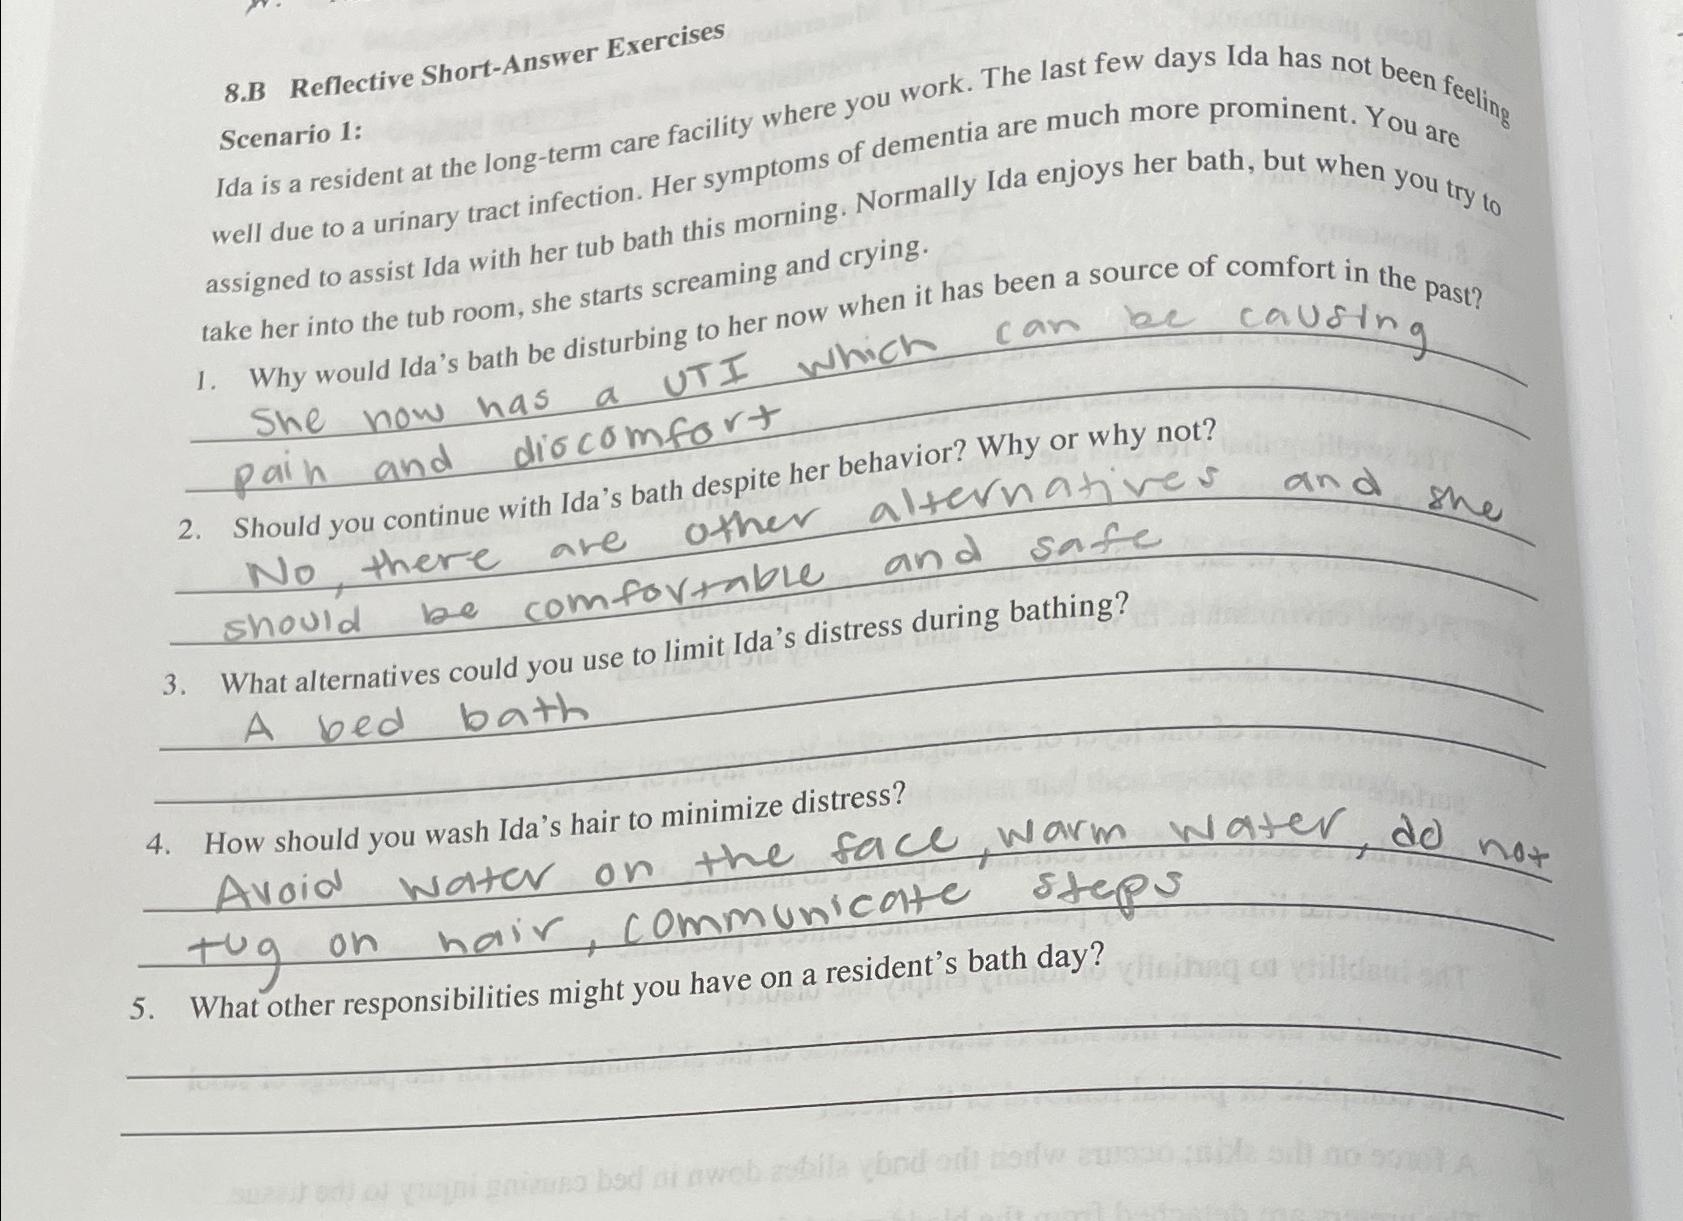 8.B Reflective Short-Answer Exercises
Scenario 1:
Ida is a resident at the long-term care facility where you work. The last few days Ida has not been feeling
well due to a urinary tract infection. Her symptoms of dementia are much more prominent. You are
assigned to assist Ida with her tub bath this morning. Normally Ida enjoys her bath, but when you try to
take her into the tub room, she starts screaming and crying.
1. Why would Ida's bath be disturbing to her now when it has been a source of comfort in the past?
She now has a UTI which can be causing
pain and discomfort
2. Should you continue with Ida's bath despite her behavior? Why or why not?
No, there are other alternatives and she
should be comfortable and safe
3. What alternatives could you use to limit Ida's distress during bathing?
A bed bath
4. How should you wash Ida's hair to minimize distress?
Avoid water on the face, warm water, do not
tug on hair, communicate steps
5. What other responsibilities might you have on a resident's bath day?